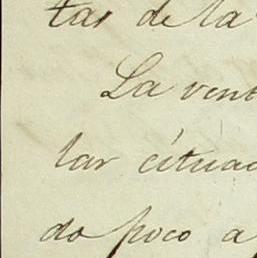 tas de la
La vent
lar cituac
do poco a